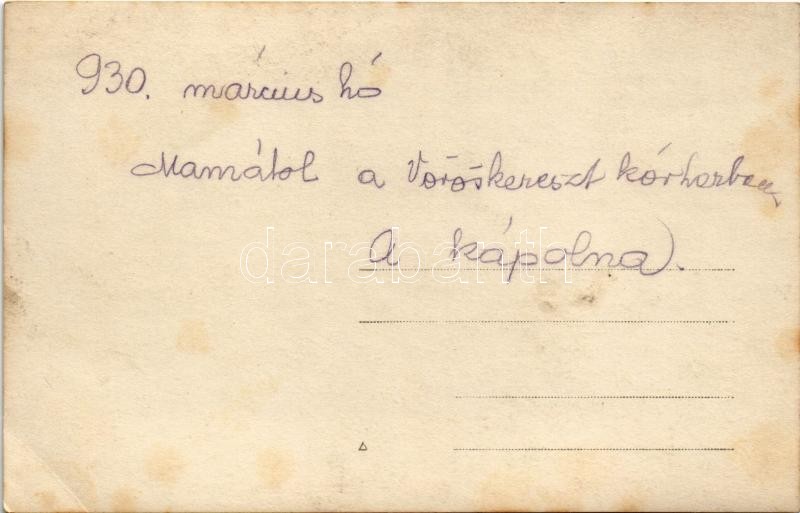 930. március hó
Mamától a Vöröskereszt kórházban
A kápolna).
darabanth